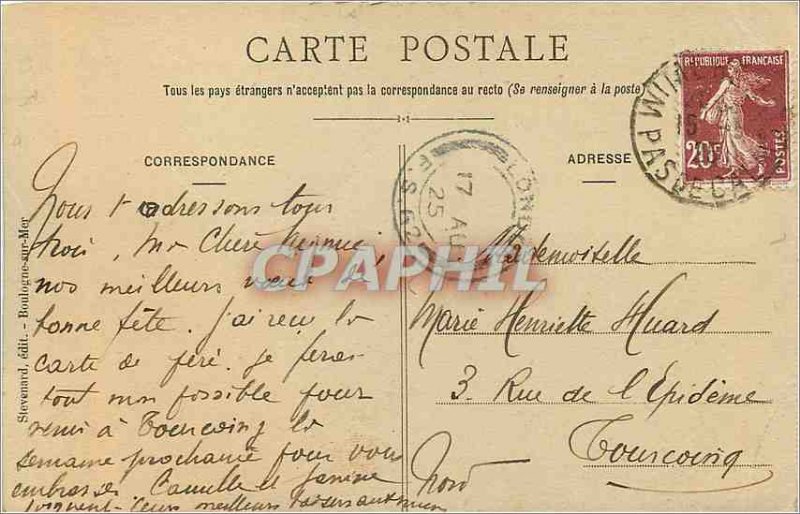 CARTE POSTALE
Tous les pays étrangers n'acceptent pas la correspondance au recto (Se renseigner à la poste)
CORRESPONDANCE
ADRESSE
REPUBLIQUE FRANÇAISE
20c
POSTES
PAS DE CALAIS
17 AU
25
CPAPHIL
Stevenard, édit. - Boulogne-sur-Mer
Nous t'adressons tous
trois, ma Chère
nos meilleurs vœux de
bonne fête. J'ai reçu la
carte de péré. Je ferai
tout mon possible pour
venir à Tourcoing la
semaine prochaine pour vous
embrasser Camille et Janine
joignent leurs meilleurs baisers aux miens
Mademoiselle
Marie Henriette Huard
3 Rue de l'Epidème
Tourcoing
Nord